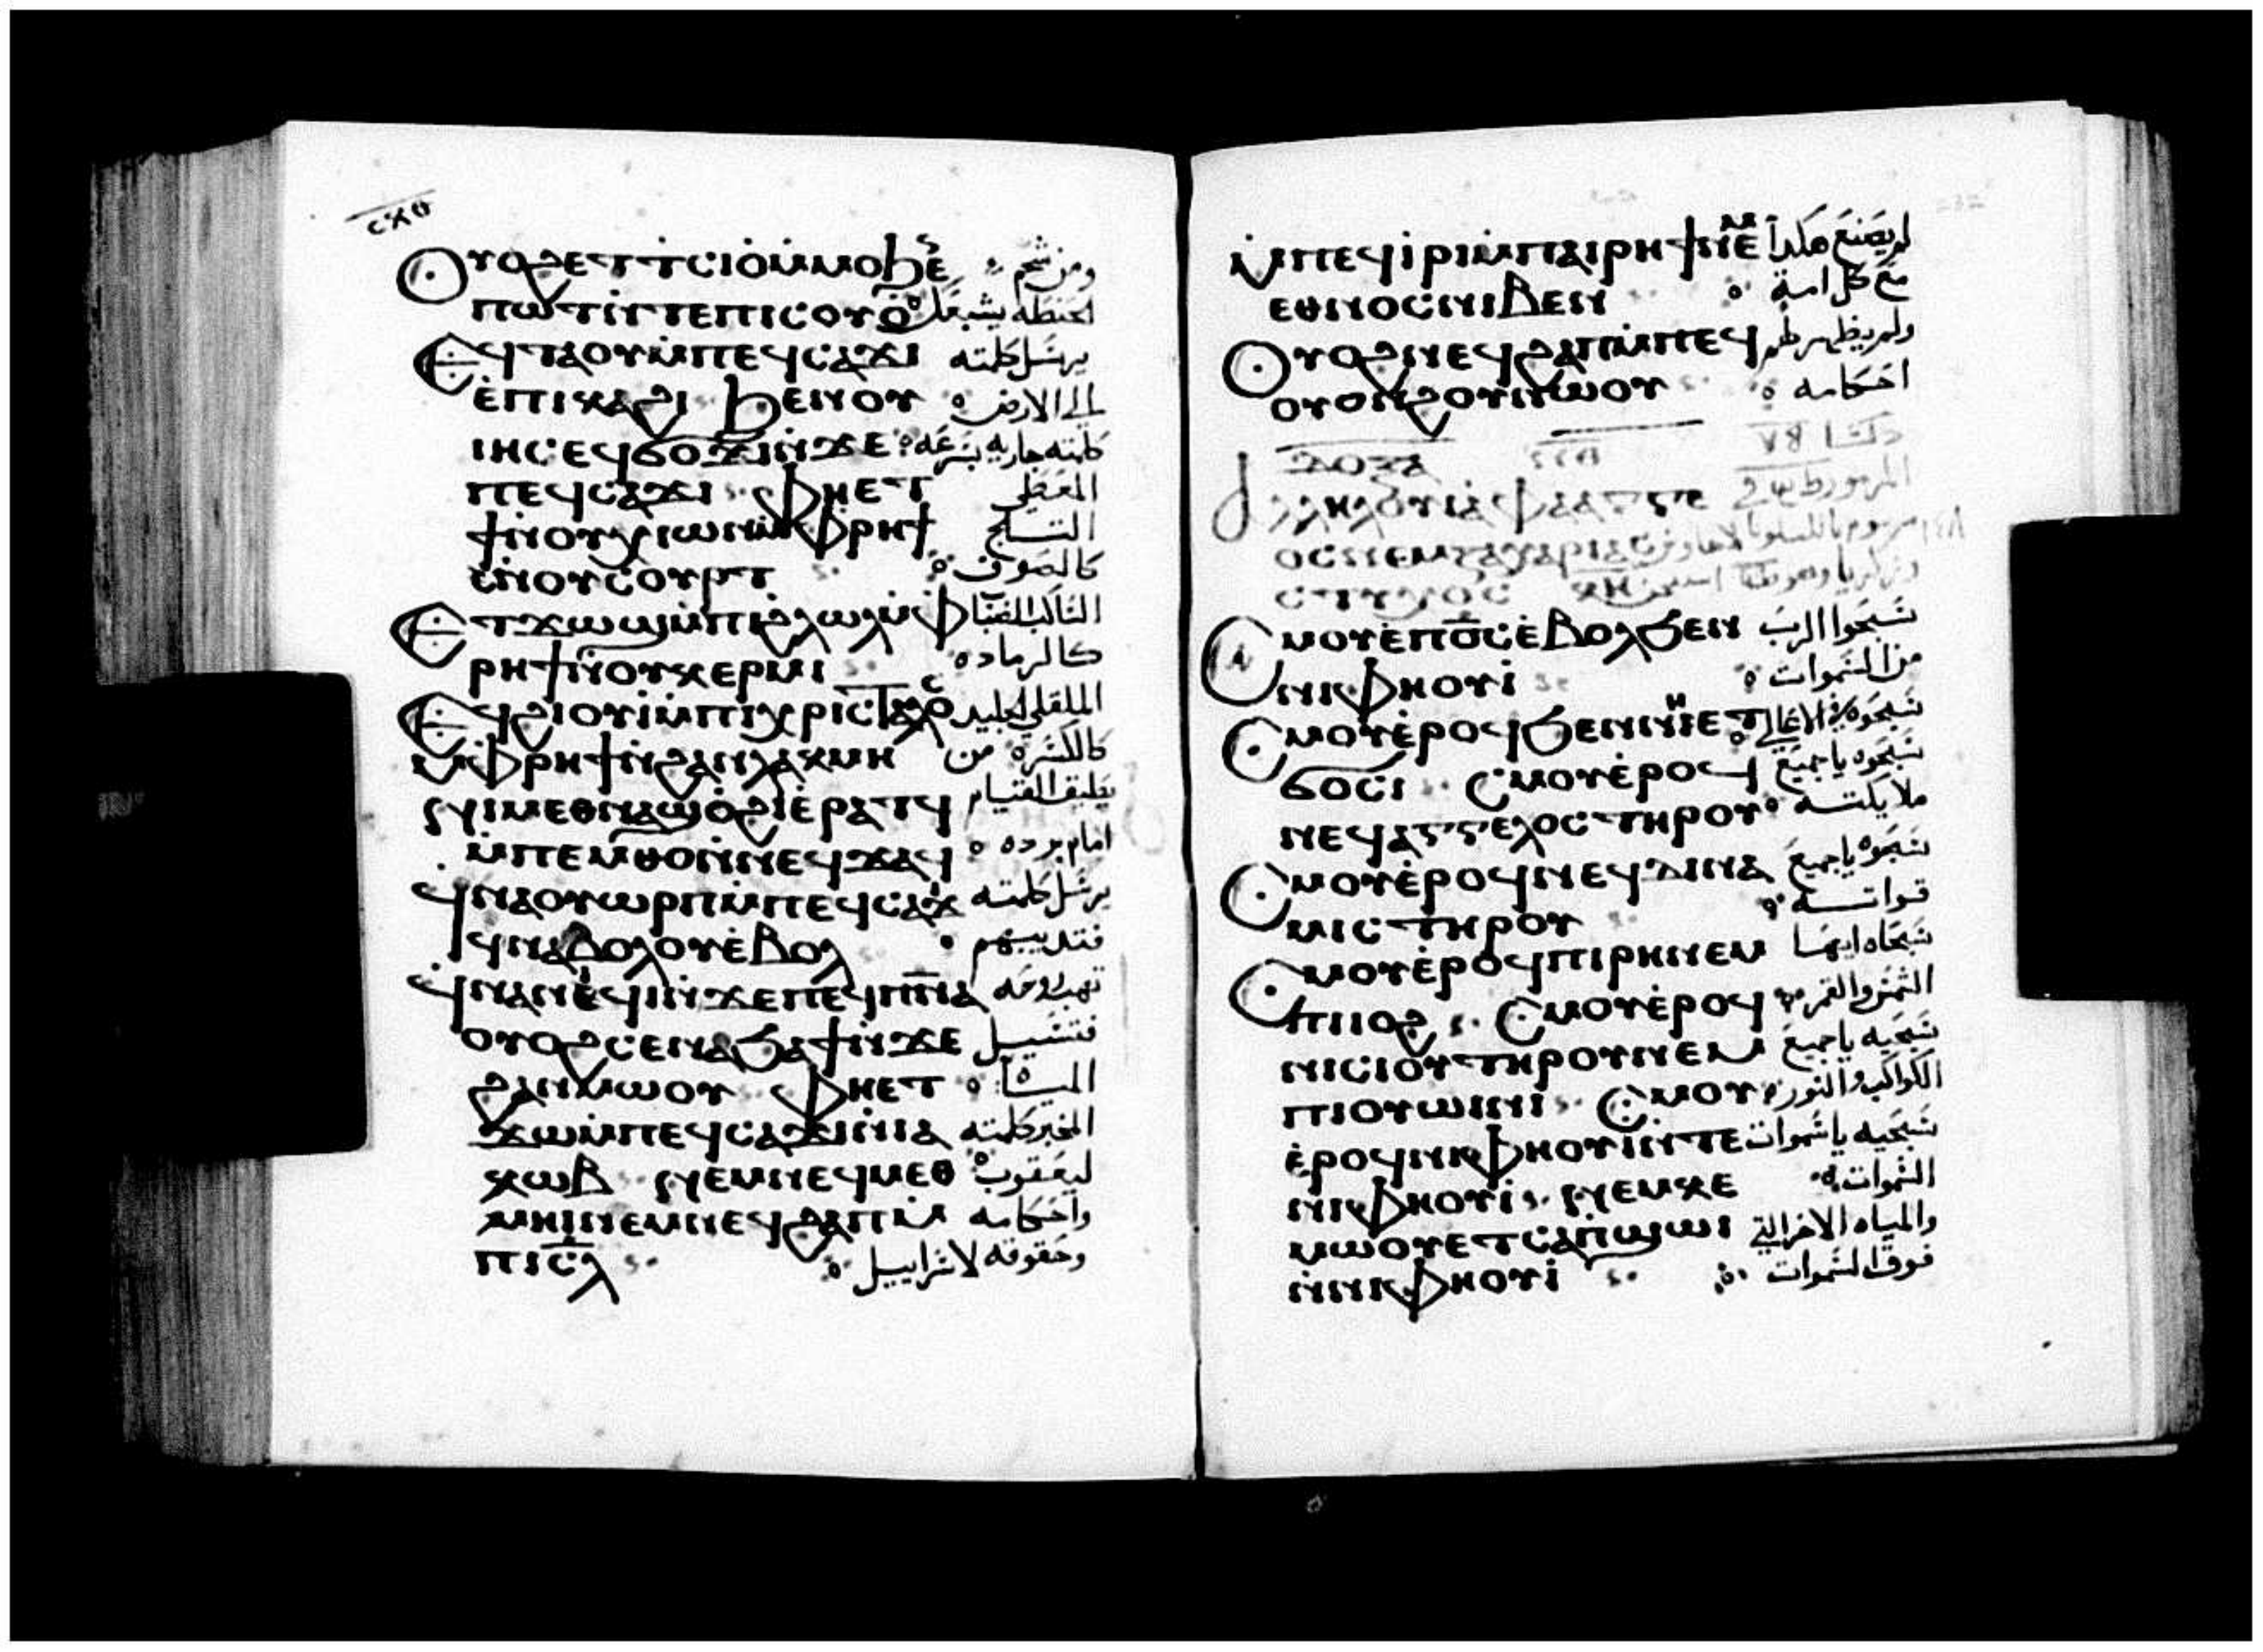 ⲥⲝⲑ
Ⲟⲩⲟϩⲉⲧⲧⲥⲓⲟ̀ⲙ̀ⲙⲟϧⲉ̀ ومن شحم
ⲡⲱⲧⲓ̀ⲛⲧⲉⲡⲓⲥⲟⲩⲟ̀ الحنطه يشبعك
Ⲉϥⲧⲁⲟⲩⲙ̀ⲡⲉϥⲥⲁϫⲓ يرسل كلمته
ⲉ̀ⲡⲓⲕⲁϩⲓ ϧⲉⲛⲟⲩ الى الارض
ⲓⲏⲥⲉϥϭⲟϫⲓⲛ̀ϫⲉ كلمته جاريه بسرعه
ⲡⲉϥⲥⲁϫⲓ ⲫⲏⲉⲧ المعطى
ϯⲛ̀ⲟⲩⲭⲓⲱⲛⲙ̀ⲫⲣⲏϯ الثلج
ⲛ̀ⲟⲩⲥⲟⲣⲧ كالصوف
Ⲉⲧϫⲱϣⲙ̀ⲡⲓϩⲗⲱⲗⲙ̀ⲫ الساكب الضباب
ⲣⲏϯⲛ̀ⲟⲩⲕⲉⲣⲙⲓ كالرماد
Ⲉϥϩⲓⲟⲩⲓ̀ⲙ̀ⲡⲓⲭⲣⲓⲥⲧⲁⲗⲟⲥ الملقى الجليد
ⲙ̀ⲫⲣⲏϯⲛ̀ϩⲁⲛⲗⲁⲕⲙⲏ كالكسره من
ⲛⲓⲙⲉⲑⲛⲁϣⲟ̀ϩⲓⲉ̀ⲣⲁⲧϥ يطيق القيام
ⲙ̀ⲡⲉⲙⲑⲟⲛ̀ⲛⲉϥϫⲁϥ امام برده
ϥ̀ⲛⲁⲟⲩⲱⲣⲡⲙ̀ⲡⲉϥⲥⲁϫⲓ يرسل كلمته
ϥⲛⲁⲃⲟⲗⲟⲩⲉ̀ⲃⲟⲗ فتذيبهم
ϥ̀ⲛⲁⲛⲓϥⲓⲛ̀ϫⲉⲡⲉϥⲡⲛⲁ تهب روحه
ⲟⲩⲟϩⲥⲉⲛⲁϧⲁϯⲛ̀ϫⲉ فتسيل
ϩⲁⲛⲙⲱⲟⲩ ⲫⲏⲉⲧ المياه
ϫⲱⲙ̀ⲡⲉϥⲥⲁϫⲓⲛ̀ⲓⲁ المخبر كلمته
ⲕⲱⲃ ⲛⲉⲙⲛⲉϥⲙⲉⲑ ليعقوب
ⲙⲏⲓⲛⲉⲙⲛⲉϥϩⲁⲡⲙ̀ واحكامه
ⲡⲓⲥⲗ وحقوقه لاسراييل
ⲙ̀ⲡⲉϥⲓ̀ⲣⲓⲙ̀ⲡⲁⲓⲣⲏϯⲛⲉⲙ لم يصنع هكذا
ⲉⲑⲛⲟⲥⲛⲓⲃⲉⲛ مع كل امة
Ⲟⲩⲟϩⲛⲉϥϩⲁⲡⲙ̀ⲡⲉϥ ولم يظهر لهم
ⲟⲩⲟⲛϩⲟⲩⲛ̀ⲱⲟⲩ احكامه
ⲇⲟⲝⲁ
ⲁⲗⲗⲏⲗⲟⲩⲓⲁ̀ المزمور
ⲟⲥⲛⲉⲙⲍⲁⲭⲁⲣⲓⲁⲥ
Ⲥⲙⲟⲩⲉ̀ⲡ⳪ⲉ̀ⲃⲟⲗϧⲉⲛ سبحوا الرب
ⲛⲓⲫⲏⲟⲩⲓ̀ من السموات
Ⲥⲙⲟⲩⲉ̀ⲣⲟϥϧⲉⲛⲛⲏⲉⲧ سبحوه في الاعالي
ϭⲟⲥⲓ Ⲥⲙⲟⲩⲉ̀ⲣⲟϥ سبحوه يا جميع
ⲛⲉϥⲁⲅⲅⲉⲗⲟⲥⲧⲏⲣⲟⲩ ملايكته
Ⲥⲙⲟⲩⲉ̀ⲣⲟϥⲛⲉϥⲇⲓⲛⲁ سبحوه يا جميع
ⲙⲓⲥⲧⲏⲣⲟⲩ قواته
Ⲥⲙⲟⲩⲉ̀ⲣⲟϥⲡⲓⲣⲏⲛⲉⲙ سبحاه ايها
ⲡⲓⲓⲟϩ Ⲥⲙⲟⲩⲉ̀ⲣⲟϥ الشمس والقمر
ⲛⲓⲥⲓⲟⲩⲧⲏⲣⲟⲩⲛⲉⲙ سبحيه يا جميع
ⲡⲓⲟⲩⲱⲓⲛⲓ Ⲥⲙⲟⲩ الكواكب والنور
ⲉ̀ⲣⲟϥⲛⲓⲫⲏⲟⲩⲓⲛ̀ⲧⲉ سبحيه يا سموات
ⲛⲓⲫⲏⲟⲩⲓ̀ ⲛⲉⲙⲕⲉ السموات
ⲙⲱⲟⲩⲉⲧⲥⲁⲡ̀ϣⲱⲓ والمياه الاخر التي
ⲛ̀ⲛⲓⲫⲏⲟⲩⲓ̀ فوق السموات